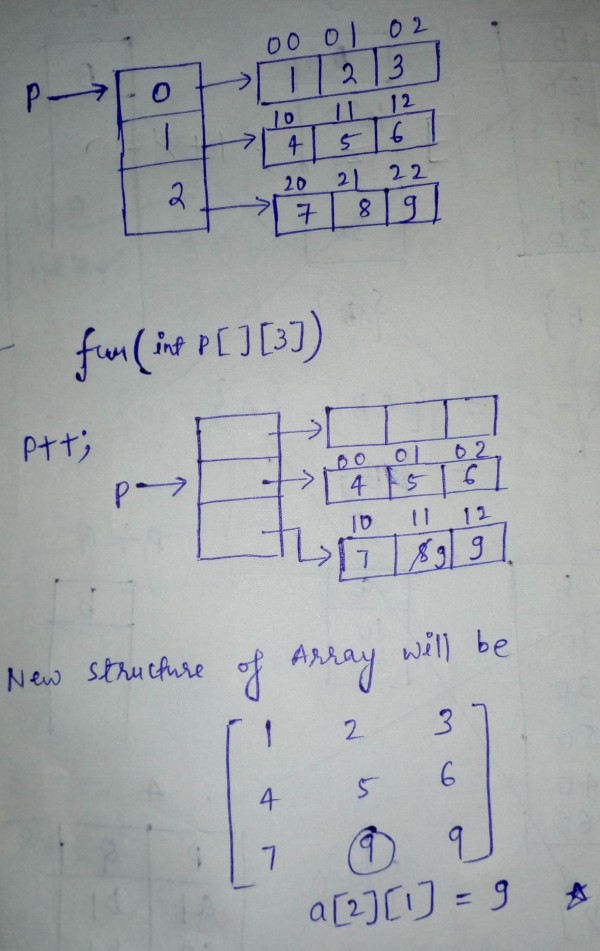 00 01 02
P → 0 → 1 2 3
10 11 12
1 → 4 5 6
20 21 22
2 → 7 8 9
fun(int P[][3])
P++;
00 01 02
P → 4 5 6
10 11 12
7 8 9 9
New structure of Array will be
1 2 3
4 5 6
7 9 9
a[2][1] = 9